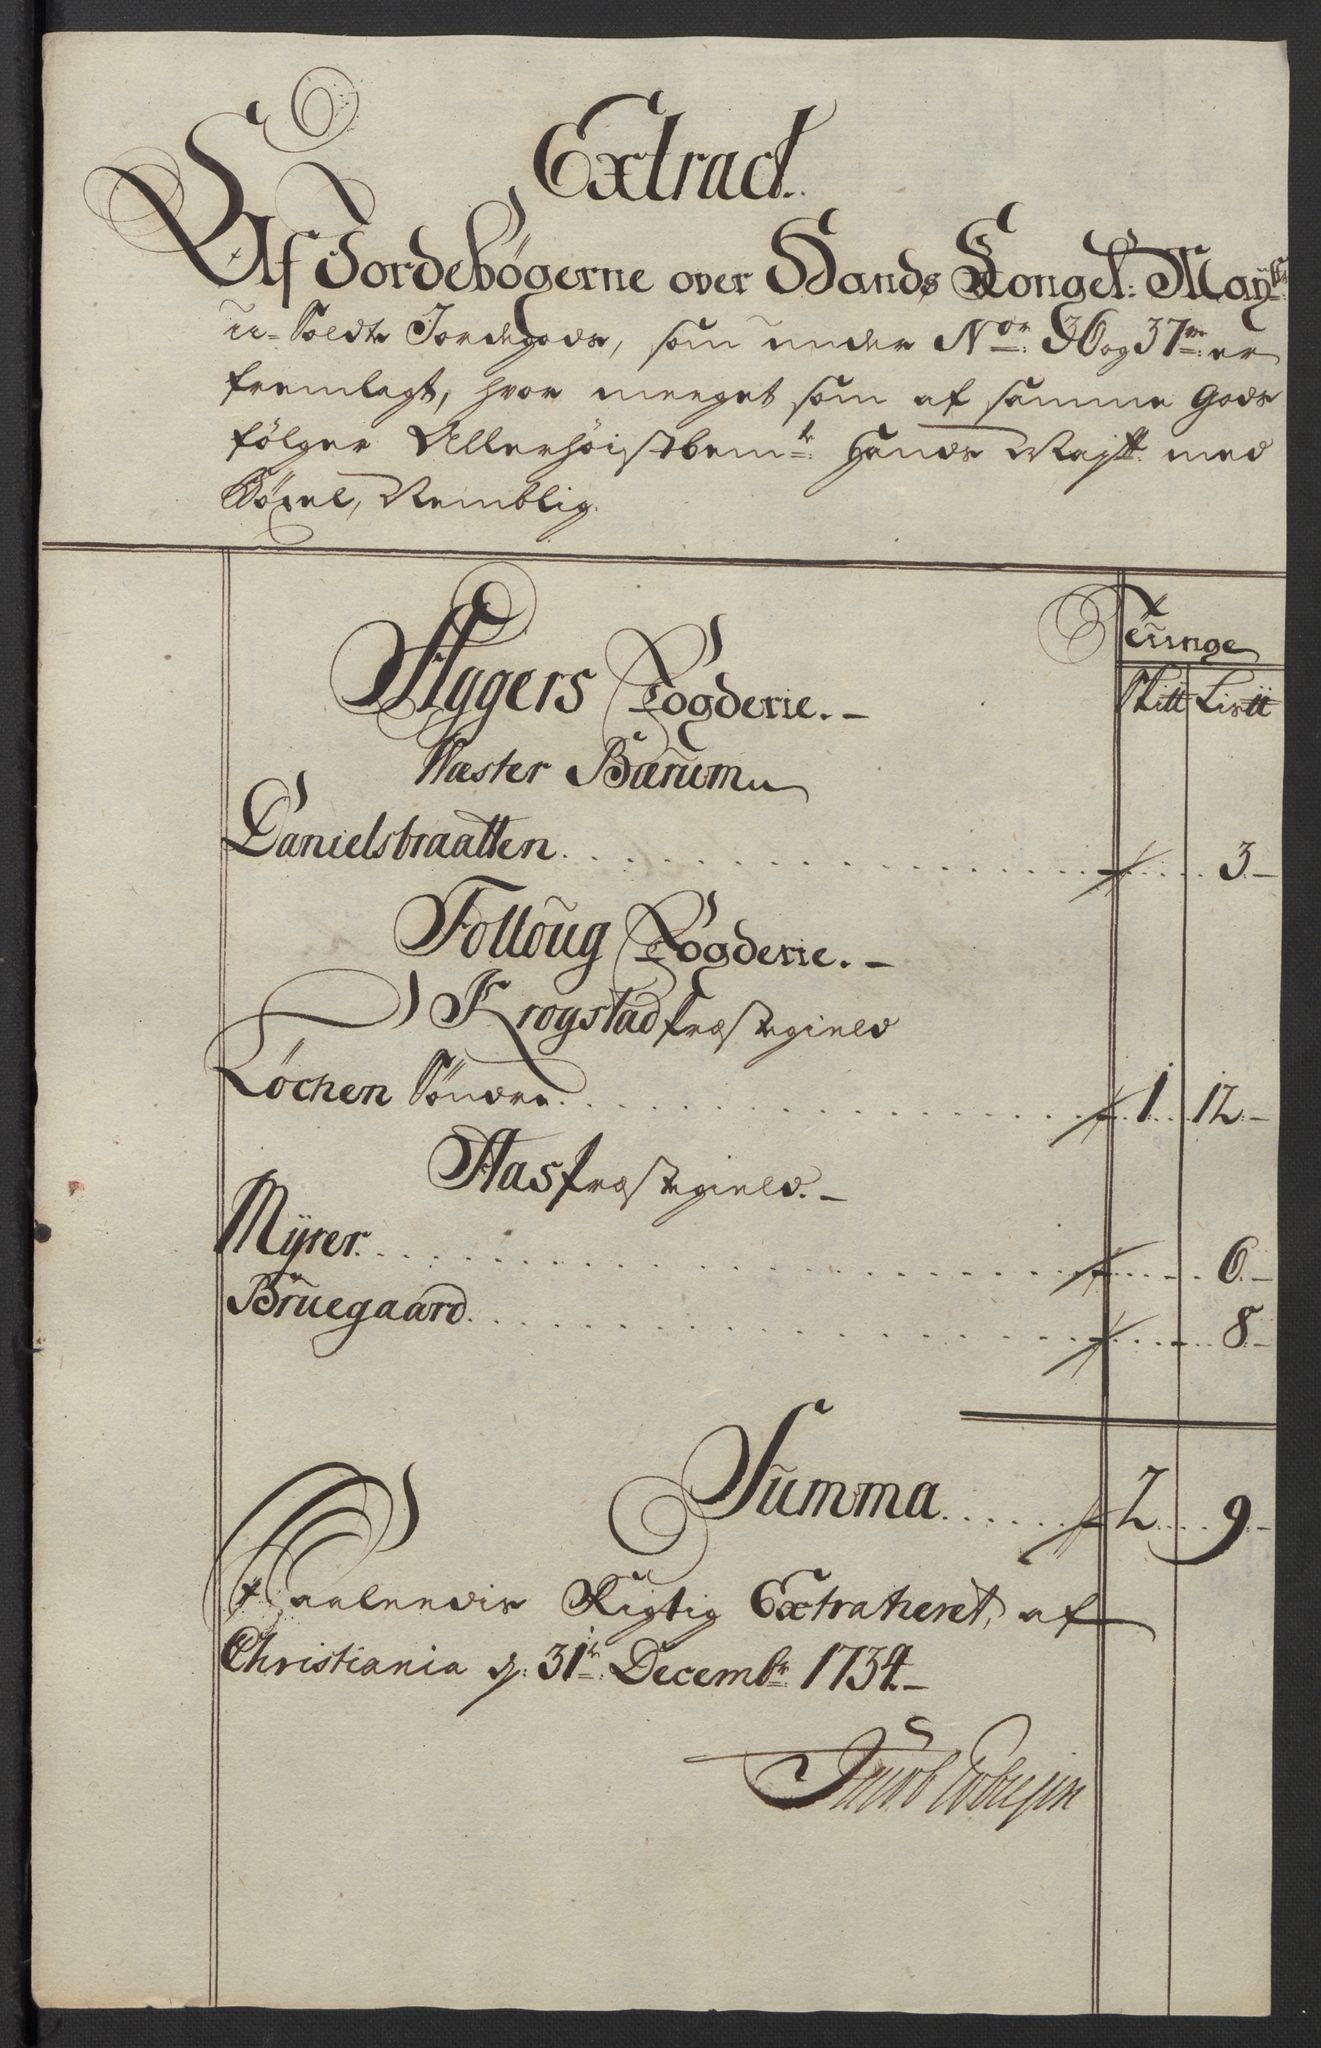 Extract.
Af Jordebögerne over Hands Kongel: May:ts
u-Soldte Jordegods, som under No:r 36 og 37:te er
fremlagt, hvor meeget som af samme Gods
fölger Allerhöist bem:te Hands Mayt: med
Böxel, Nemblig.
Tüinge
Aggers Fogderie.
Sk℔ Lis℔
Wæster Bærum
Danielsbraatten. 3
Follöug Fogderie.
Krogstad Præstegield
Löchen Söndre. 1. 12
Aas Præstegield.
Myrer. 6
Bruegaard. 8
Summa. 2. 9
Saaleedis Rigtig Extraheret, af
Christiania d: 31:te Decemb:r 1734.
Jacob